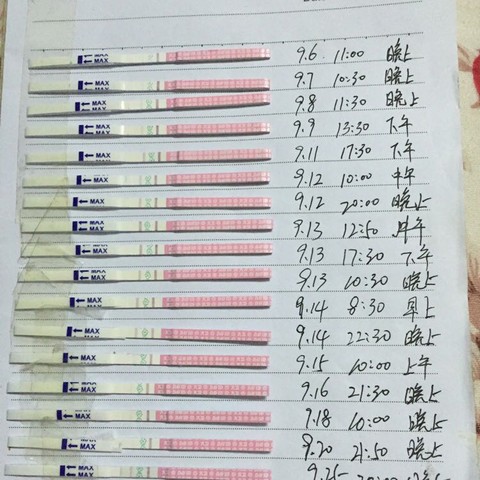 MAX 9.6 11:00 晚上
MAX 9.7 10:30 晚上
MAX 9.8 11:30 晚上
MAX 9.9 13:30 下午
MAX 9.11 17:30 下午
MAX 9.12 10:00 中午
MAX 9.12 20:00 晚上
MAX 9.13 12:50 中午
MAX 9.13 17:30 下午
MAX 9.13 10:30 晚上
MAX 9.14 8:30 早上
MAX 9.14 22:30 晚上
MAX 9.15 10:00 上午
MAX 9.16 21:30 晚上
MAX 9.18 10:00 晚上
MAX 9.20 21:50 晚上
MAX 9.25